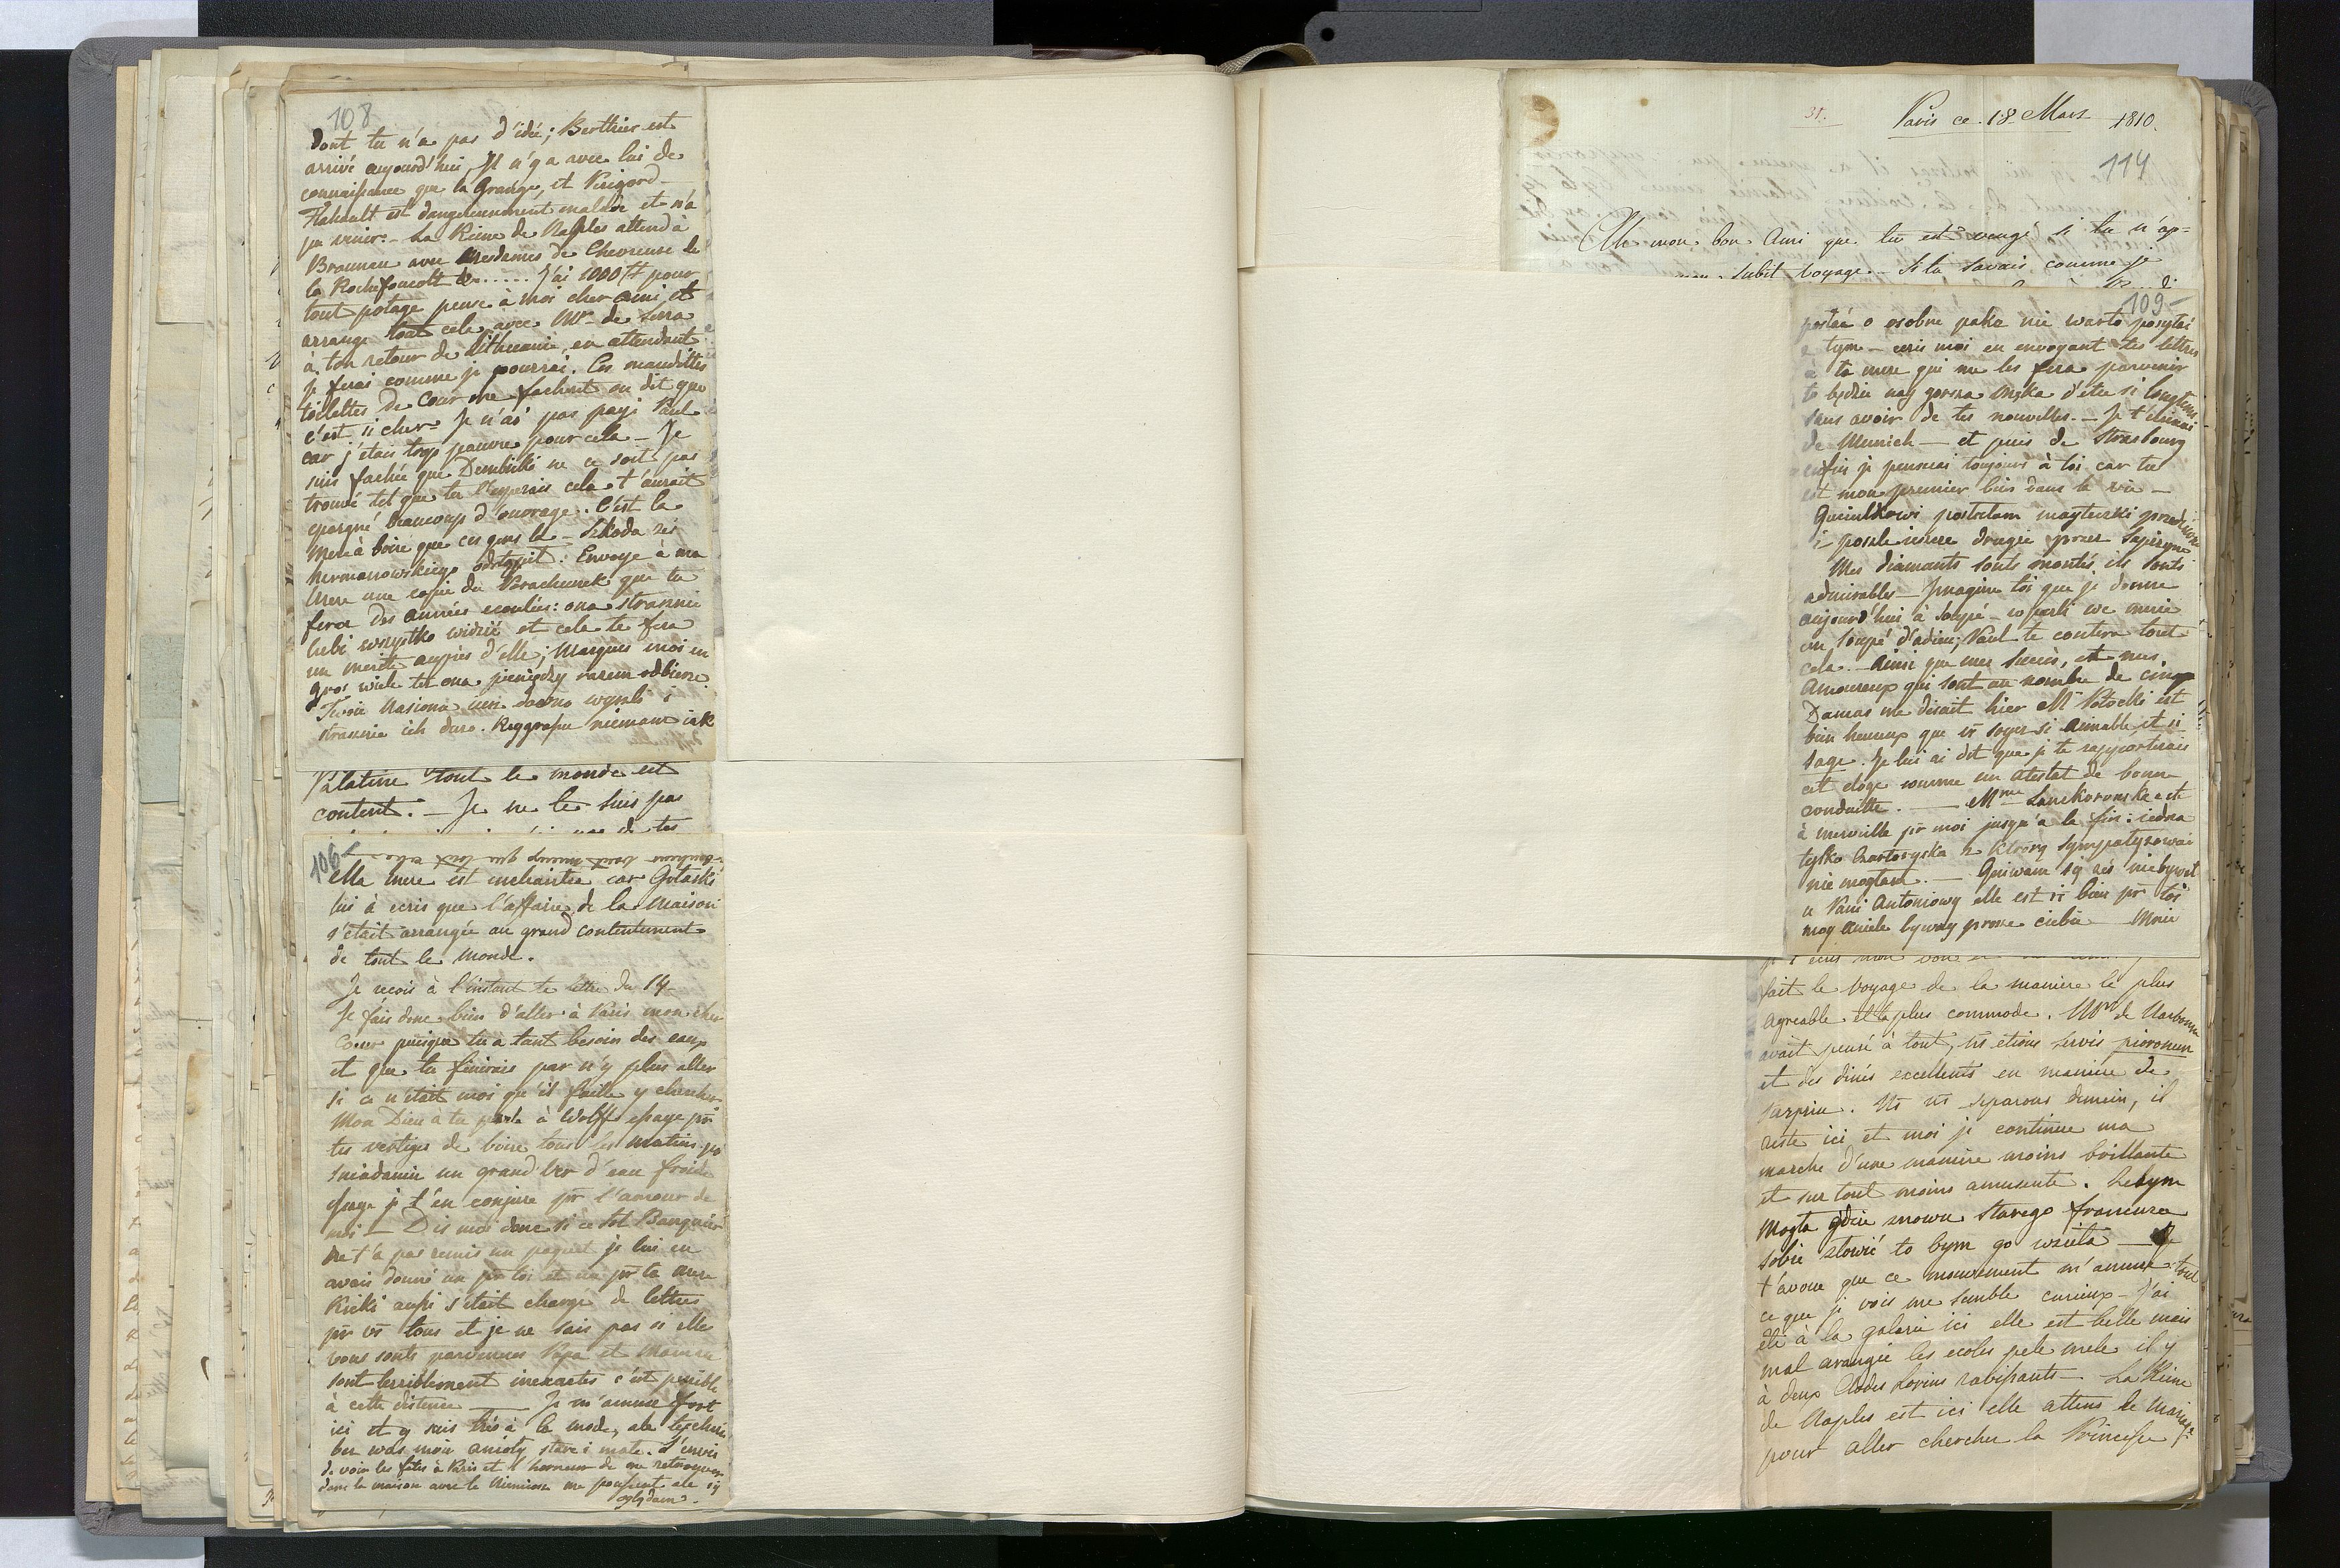 108
dont tu n'a pas d'idée; Berthier est
arrivé aujourd'hui, Il n'y a avec lui de
connaissance que la Grange, et Perigord_
Flahault est dangereusement malade et n'a
pu venir. _ La Reine de Naples attend à
Braunau avec Mesdames de Chevreuse de
la Rochefoucolt &...... J'ai 1000 # pour
tout potage pense à moi cher ami et
arrange tout cela avec Mr de Serra
à ton retour de Lithuanie, en attendant
je ferai comme je pourrai. Ces maudittes
toilettes de Cour me fachent on dit que
c'est si cher. Je n'ai pas payé Paul
car j'étais trop pauvre pour cela _ Je
suis fachée que Dembicki ne ce soit pas
trouvé tel que tu l'esperais cela t'aurait
epargné beaucoup d'ouvrage. C'est la
mere à boire que ces gens là _ Szkoda żeś
hermanowskiego odstąpił. Envoye à ma
Mere une copie du Rachunek que tu
fera des années ecoulées: ona strasznie
lubi wszystko widzić et cela te fera
un merite auprès d'elle; Marques moi en
gros wiele też ona pieniędzy razem odbierze
Twoie Nasiona iuż dawno wyszli i
strasznie ich dużo. Reggrafu niemam iak
Palatine tout le monde est
content. _ Je ne le suis pas
106
Ma mere est enchantée car Gotaski
lui à ecris que l'affaire de la Maison
s'était arrangée au grand contentement
de tout le monde.
Je reçois à l'instant ta lettre du 14_
Je fais donc bien d'aller à Paris mon cher
Coeur puisque tu a tant besoin des eaux
et que tu finirais par n'y plus aller
si ce n'était moi qu'il faille y chercher
Mon Dieu à tu parlé à Wolff essaye pr
tes vertiges de boire tous les matins po
śniadaniu un grand ver d'eau froide
je t'en conjure pr l'amour de
moi _ Dis moi donc si ce sot Banquier
ne t'a pas remis un paquet je lui en
avais donné un pr toi et un pr ta mere
Ricki aussi s'était chargé de lettres
pr vs tous et je ne sais pas si elle
vous sonts parvenues Papa et Maman
sont terriblement inexactes c'est penible
à cette distance _ Je m'amuse fort
ici et y suis très à la mode, ale tęschnię
bez was moie anioły stare i małe. L'envie
de voir les fetes à Paris et l'horreur de me retrouver
dans la maison avec le me poussent ale iy
oglądam.
31.
Paris ce 18 Mars 1810.
114
Ah mon bon Ami que tu est vengé si tu n'ap=
mon subit voyage _ Si tu savais comme je
109
postać o osobne paka nie warto posyłać
z tym _ ecris moi en envoyant tes lettres
à ta mere qui me les fera parvenir
to będzie nay gorsza męka d'etre si longtems
sans avoir de tes nouvelles. _ Je t'écrirai
de Munich _ et puis de Strasbourg
enfin je penserai toujours à toi car tu
est mon premier bien dans la vie _
posłałam mayteczki
i poszle ieszcze drugie przez
Mes diamants sonts montés ils sonts
admirables _ Imagine toi que je donne
aujourd'hui à soupé _ we mnie
un soupé d'adieu; Paul te contera tout
cela _ Ainsi que mes succès, et mes
Amoureux qui sont au nombre de cinq
Damas me disait hier Mr Potocki est
bien heureux que vs soyez si aimable et si
sage. Je lui ai dit que je te rapporterais
cet eloge comme un atestat de bonne
conduitte. _ Mme Lanckoronska est
à merveille pr moi jusqu'a la fin: iedna
tylko Czartoryska z którą sympatyzować
nie mogłam. _ Gniwam się żeś nie bywał
u Pani Antoniowy elle est si bien pr toi
moy aniele byway prosze ciebie _ Mnie
fait le voyage de la maniere la plus
agreable et la plus commode. Mr de Narbonne
avait pensé à tout, ns etions servis piorunem
et des dinés excellents en maniere de
surprise. Ns ns separons demain, il
reste ici et moi je continue ma
marche d'une maniere moins brillante
et sur tout moins amusente. Żebym
mogła gdzie znowu starego francuza
sobie złowić to bym go wzieła _ Je
t'avoue que ce mouvement m'amuse tout
ce que je vois me semble curieux _ J'ai
été à la galerie ici elle est belle mais
mal arangée les ecoles pele mele il y
à deux Clodes Lorins ravissants _ La Reine
de Naples est ici elle attens le mariage
pour aller chercher la Princesse